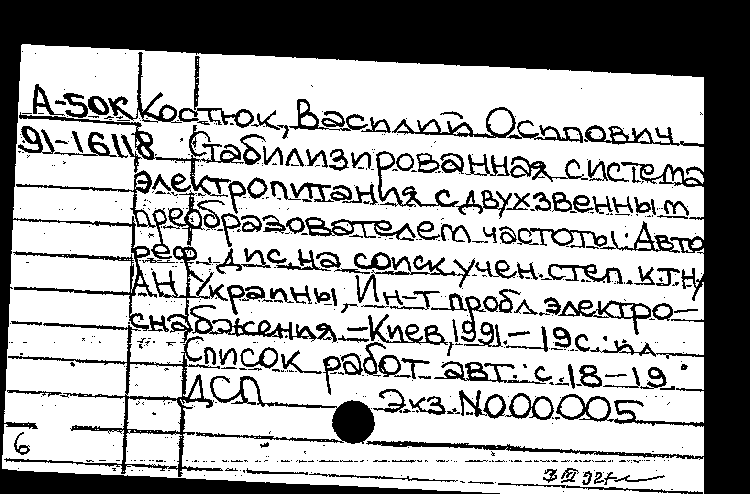 А-50К Костюк, Василий Осипович
91-16118 Стабилизированная система
электропитания с двухзвенным
преобразователем частоты: Авто
реф. дис. на соиск. учен. степ. к.т.н/
АН Украины, Ин-т пробл. электро-
снабжения -Киев, 1991.- 19с.: ил.
Список работ авт.: с.18-19.
ДСП Экз. N000005
6
3 III 92г